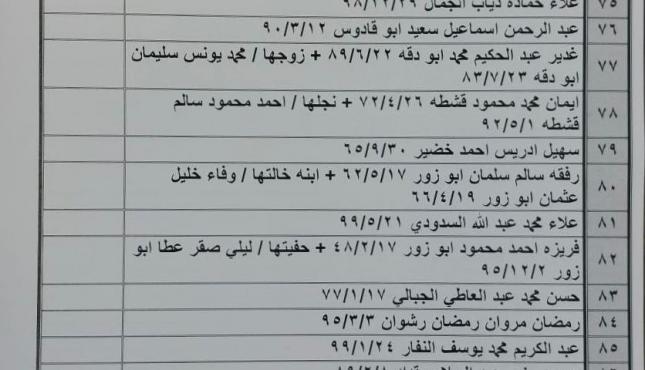 ٧٥ علاء حمادة دياب الجمال ٩٨/١٢/٢٩
٧٦ عبد الرحمن اسماعيل سعيد ابو قادوس ٩٠/٣/١٢
٧٧ غدير عبد الحكيم محمد ابو دقه ٨٩/٦/٢٢ + زوجها / محمد يونس سليمان
ابو دقه ٨٣/٧/٢٣
٧٨ ايمان محمد محمود قشطه ٧٢/٤/٢٦ + نجلها / احمد محمود سالم
قشطه ٩٢/٥/١
٧٩ سهيل ادريس احمد خضير ٦٥/٩/٣٠
٨٠ رفقه سالم سلمان ابو زور ٦٢/٥/١٧ + ابنه خالتها / وفاء خليل
عثمان ابو زور ٦٦/٤/١٩
٨١ علاء محمد عبد الله السدودي ٩٩/٥/٢١
٨٢ فريزه احمد محمود ابو زور ٤٨/٢/١٧ + حفيتها / ليلي صقر عطا ابو
زور ٩٥/١٢/٢
٨٣ حسن محمد عبد العاطي الجبالي ٧٧/١/١٧
٨٤ رمضان مروان رمضان رشوان ٩٥/٣/٣
٨٥ عبد الكريم محمد يوسف النفار ٩٩/١/٢٤